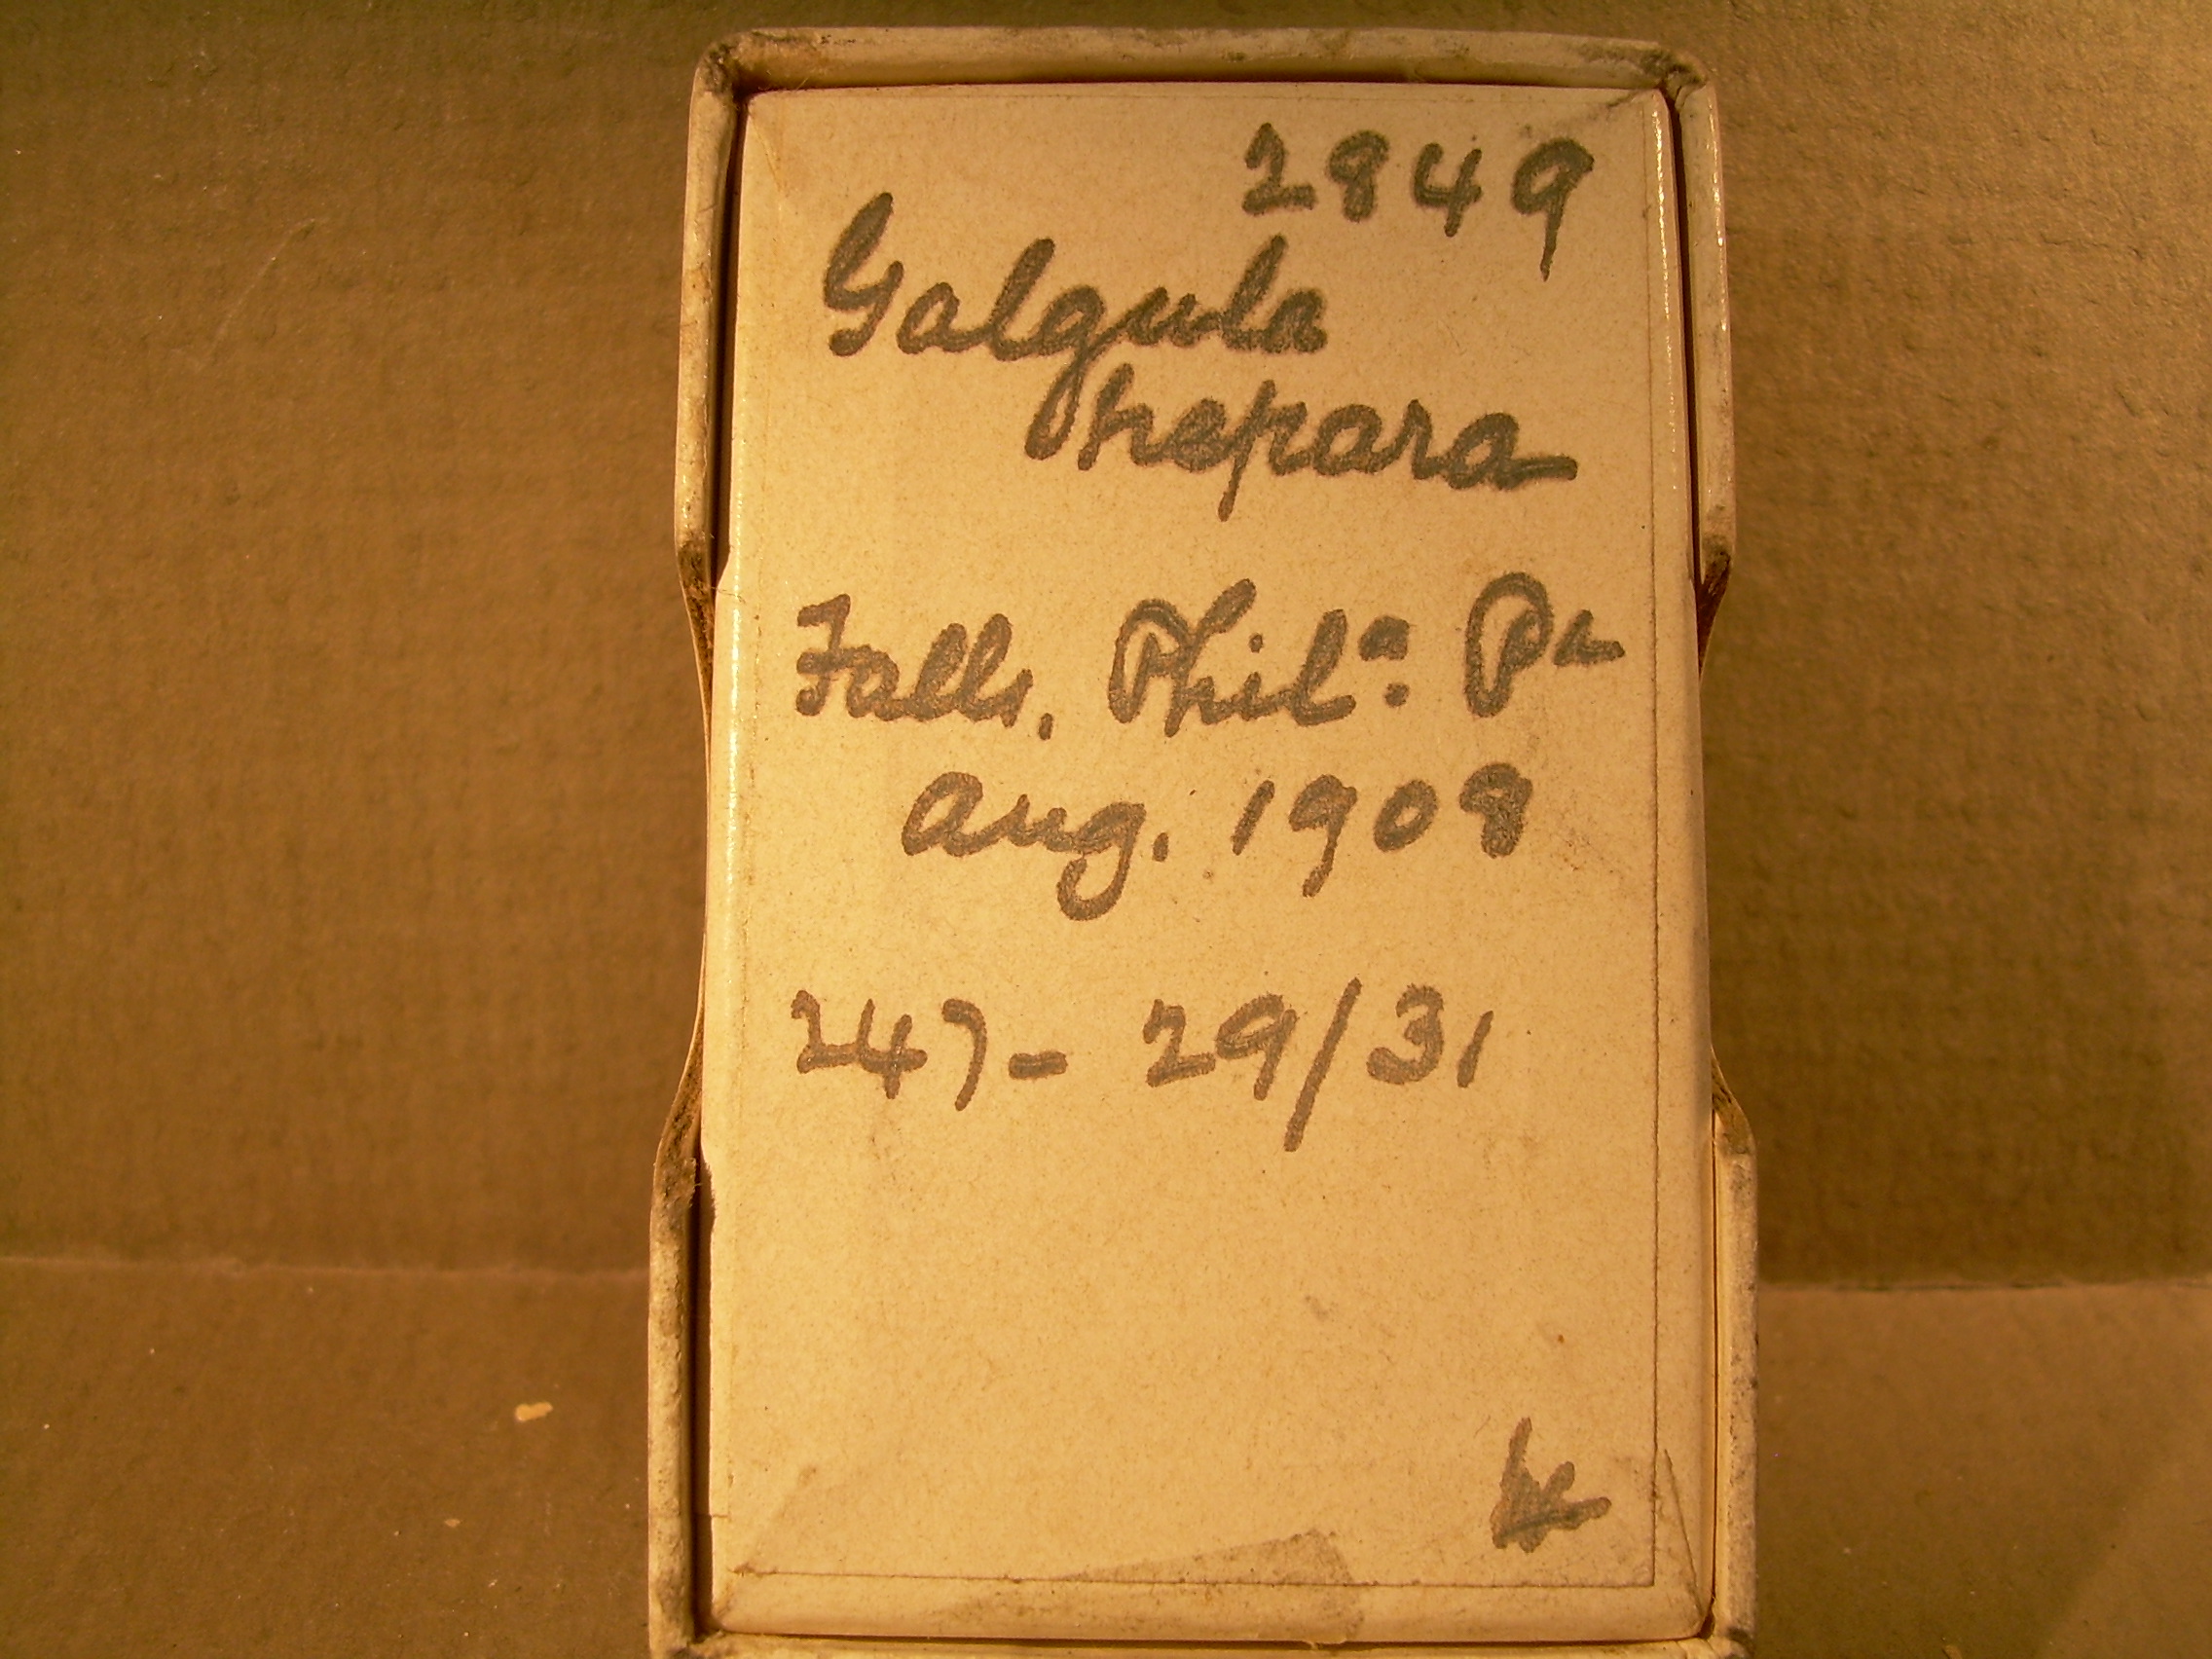 2849
Galgula
hepara
Falls. Phil.ª Pa
Aug. 1908
247- 29/31